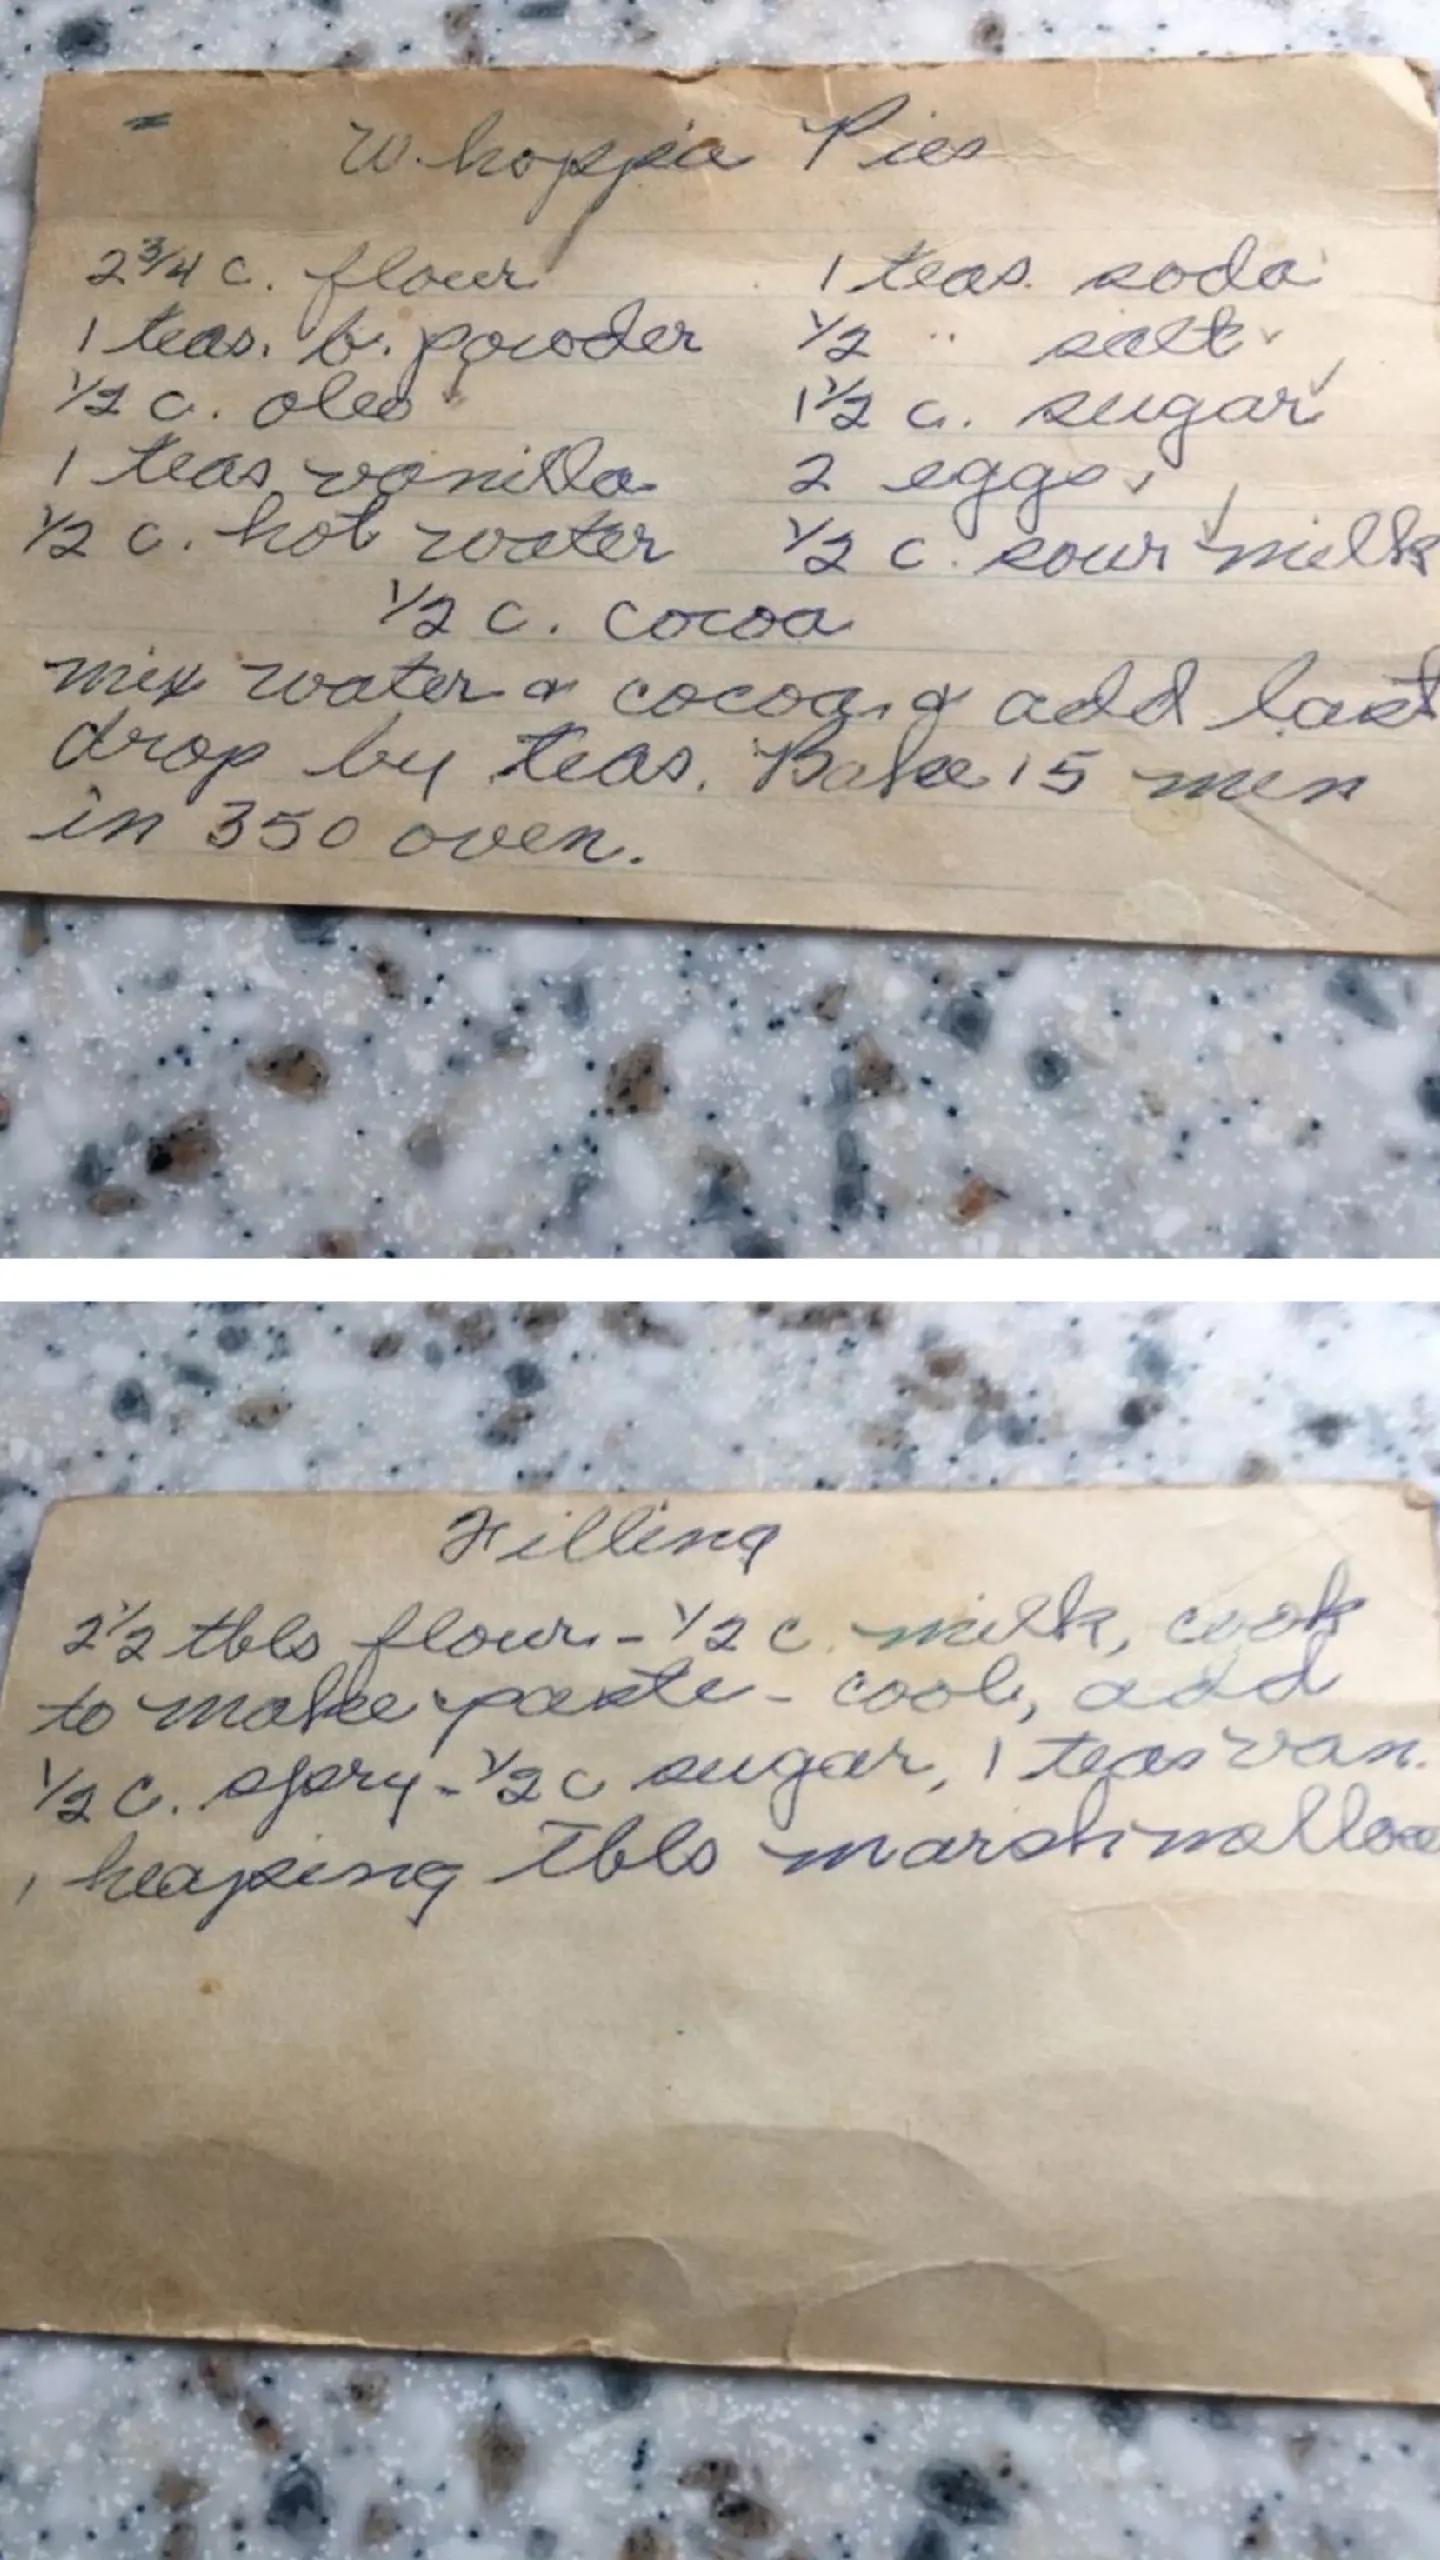 Whoppie Pies
2 3/4 c. flour 1 teas. soda
1 teas. b. powder 1/2 " salt
1/2 c. oleo 1 1/2 c. sugar
1 teas vanilla 2 eggs
1/2 c. hot water 1/2 c. sour milk
1/2 c. cocoa
mix water & cocoa, & add last
drop by teas. Bake 15 min
in 350 oven.
Filling
2 1/2 tbls flour - 1/2 c. milk, cook
to make paste - cool, add
1/2 c. spry - 1/2 c sugar, 1 teas van.
1 heaping Tbls marshmallow